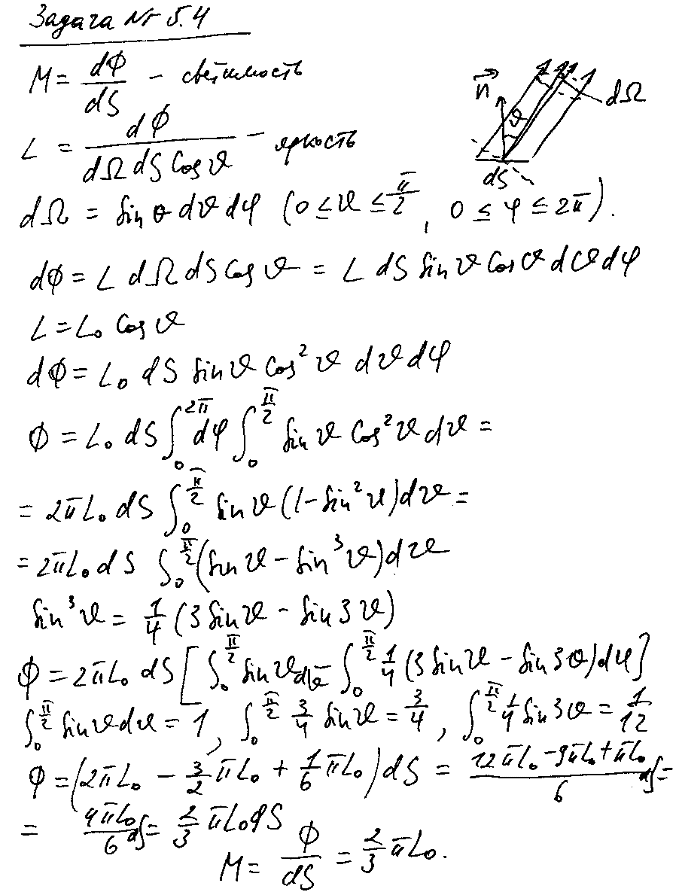 Задача № 5.4
M = dΦ/dS – светимость
L = dΦ/(dΩ dS Cos ϑ) – яркость
n⃗ ϑ dΩ dS
dΩ = Sin θ dϑ dφ (0 ≤ ϑ ≤ π/2, 0 ≤ φ ≤ 2π).
dΦ = L dΩ dS Cos ϑ = L dS Sin ϑ Cos ϑ dϑ dφ
L = L₀ Cos ϑ
dΦ = L₀ dS Sin ϑ Cos² ϑ dϑ dφ
Φ = L₀ dS ∫₀^{2π} dφ ∫₀^{π/2} Sin ϑ Cos² ϑ dϑ =
= 2πL₀ dS ∫₀^{π/2} Sin ϑ (1 – Sin² ϑ) dϑ =
= 2πL₀ dS ∫₀^{π/2} (Sin ϑ – Sin³ ϑ) dϑ
Sin³ ϑ = 1/4 (3 Sin ϑ – Sin 3ϑ)
Φ = 2πL₀ dS [∫₀^{π/2} Sin ϑ dϑ – ∫₀^{π/2} 1/4 (3 Sin ϑ – Sin 3θ) dφ]
∫₀^{π/2} Sin ϑ dϑ = 1, ∫₀^{π/2} 3/4 Sin ϑ = 3/4, ∫₀^{π/2} 1/4 Sin 3ϑ = 1/12
Φ = (2πL₀ – 3/2 πL₀ + 1/6 πL₀) dS = (12πL₀ – 9πL₀ + πL₀)/6 dS =
= 4πL₀/6 dS = 2/3 πL₀ dS
M = Φ/dS = 2/3 πL₀.